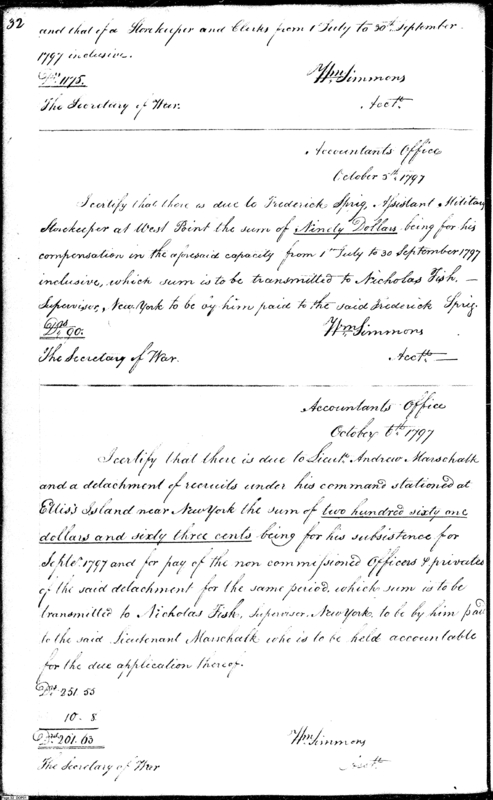 32
and that of a Storekeeper and Clerks from 1st July to 30th September
1797 inclusive.
Drs. 1175.
Wm Simmons
The Secretary of War.
Acctt.
Accountants Office
October 5th. 1797
I certify that there is due to Frederick Sprig, Assistant Military
Storekeeper at West Point the sum of Ninety Dollars being for his
compensation in the aforesaid capacity from 1st July to 30 September 1797
inclusive, which sum is to be transmitted to Nicholas Fish, —
Supervisor, New York to be by him paid to the said Frederick Sprig.
Drs. 90.
Wm Simmons
The Secretary of War.
Acctt. —
Accountants Office
October 6th. 1797
I certify that there is due to Lieut. Andrew Marschalk
and a detachment of recruits under his command stationed at
Ellis's Island near New York the sum of two hundred sixty one
dollars and sixty three cents being for his subsistence for
Septr. 1797 and for pay of the non commissioned Officers & privates
of the said detachment for the same period, which sum is to be
transmitted to Nicholas Fish, Supervisor New York, to be by him paid
to the said Lieutenant Marschalk who is to be held accountable
for the due application thereof.
Drs. 251 55
10. 8
Drs. 261. 63
Wm Simmons
The Secretary of War
Acctt.